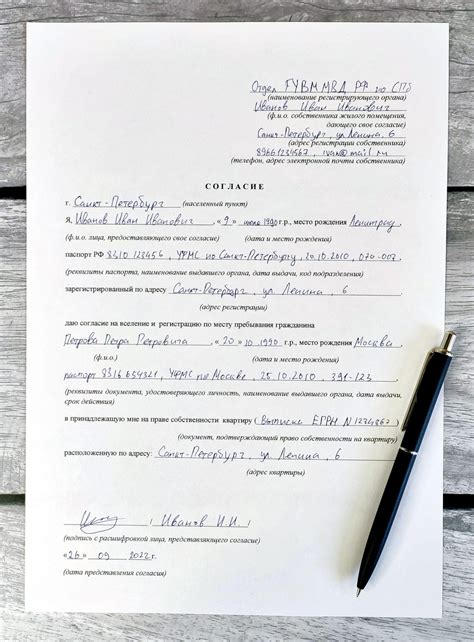 Отдел ГУВМ МВД РФ по СПб
(наименование регистрирующего органа)
Иванов Иван Иванович
(ф.и.о. собственника жилого помещения,
дающего свое согласие)
Санкт-Петербург, ул Ленина, 6
(адрес регистрации собственника)
89661234567, ivan@mail.ru
(телефон, адрес электронной почты собственника)
СОГЛАСИЕ
г. Санкт-Петербург (населенный пункт)
Я, Иванов Иван Иванович, «9» июля 1990 г.р., место рождения Ленинград,
(ф.и.о. лица, предоставляющего свое согласие) (дата и место рождения)
паспорт РФ 8310 123456 УФМС по Санкт-Петербургу, 20.10.2010, 070-007,
(реквизиты паспорта, наименование выдавшего органа, дата выдачи, код подразделения)
зарегистрированный по адресу Санкт-Петербург, ул. Ленина, 6
(адрес регистрации)
даю согласие на вселение и регистрацию по месту пребывания гражданина
Петрова Петра Петровича, «20» 10 1990 г.р., место рождения Москва,
(ф.и.о.) (дата и место рождения)
паспорт 8316 654321, УФМС по Москве, 25.10.2010, 391-123
(реквизиты документа, удостоверяющего личность, наименование выдавшего органа, дата выдачи,
срок действия)
в принадлежащую мне на праве собственности квартиру (Выписка ЕГРН N 1234567)
(документ, подтверждающий право собственности на квартиру)
расположенную по адресу: Санкт-Петербург, ул Ленина, 6
(адрес квартиры)
/ Иванов И.И. /
(подпись с расшифровкой лица, представляющего согласие)
«26» 09 2022 г.
(дата представления согласия)